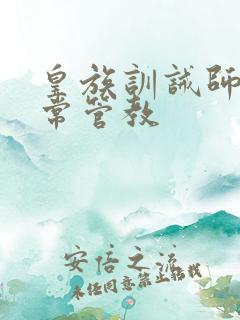 皇族訓誡師
常管教
安倍之流
未经同意禁止转载